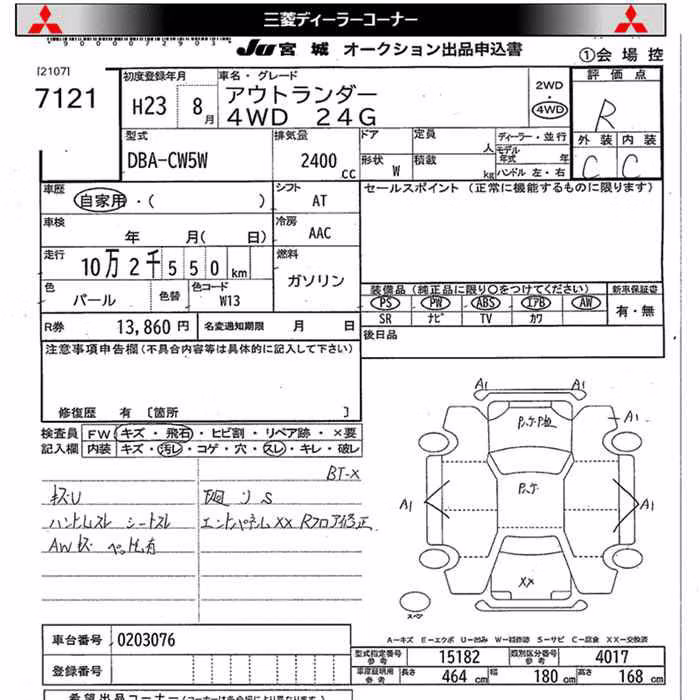 三菱ディーラーコーナー
JU 宮城 オークション出品申込書
①会場控
[2107]
7121
初度登録年月
H23 8月
車名・グレード
アウトランダー
4WD 24G
2WD
・
4WD
評価点
R
外装 内装
C C
型式
DBA-CW5W
排気量
2400 cc
ドア
形状 W
定員 人
積載 kg
ディーラー・並行
モデル
年式 年
ハンドル 左・右
車歴
自家用・( )
シフト
AT
セールスポイント (正常に機能するものに限ります)
車検
年 月( 日)
冷房
AAC
走行
10万2千550 km
燃料
ガソリン
色
パール
色替
色コード
W13
装備品 (純正品に限り○をつけてください)
PS PW ABS エアB AW
SR ナビ TV カワ
新車保証書
有・無
R券 13,860円
名変通知期限 月 日
後日品
注意事項申告欄(不具合内容等は具体的に記入して下さい)
修復歴 有 [箇所 ]
検査員
記入欄
FW キズ・飛石・ヒビ割・リペア跡・×要
内装 キズ・汚レ・コゲ・穴・スレ・キレ・破レ
BT-X
キズU
ハンドルスレ シートスレ
エンドパネルXX Rフロア修正
AWキズ
A1 A1
A1
A1 A1
XX
スペア
A-キズ E-エクボ U-凹み W-補修跡 S-サビ C-腐食 XX-交換済
車台番号 0203076
登録番号
型式指定番号
参考
15182
類別区分番号
参考
4017
車庫証明用
参考
長さ 464 cm
幅 180 cm
高さ 168 cm
希望出品コーナー